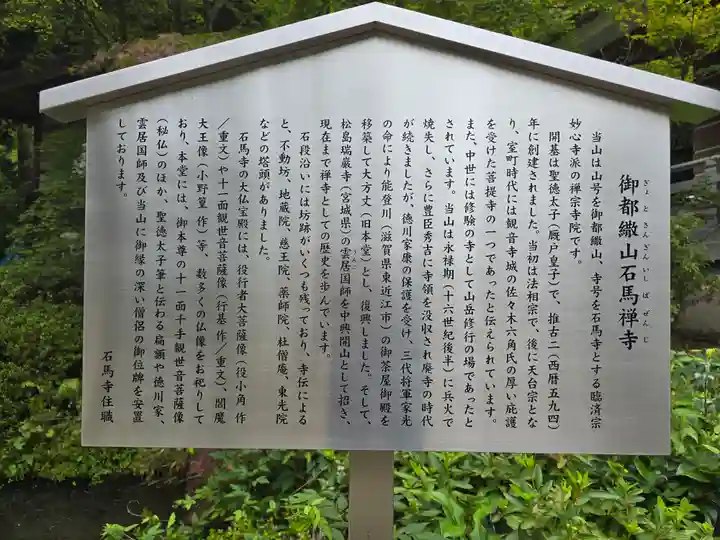 御都繖山石馬禅寺
ぎょとさんざんいしばぜんじ
当山は山号を御都繖山、寺号を石馬寺とする臨済宗
妙心寺派の禅宗寺院です。
開基は聖徳太子（厩戸皇子）で、推古二（西暦五九四）
年に創建されました。当初は法相宗で、後に天台宗とな
り、室町時代には観音寺城の佐々木六角氏の厚い庇護
を受けた菩提寺の一つであったと伝えられています。
また、中世には修験の寺として山岳修行の場であったと
されています。当山は永禄期（十六世紀後半）に兵火で
焼失し、さらに豊臣秀吉に寺領を没収され廃寺の時代
が続きましたが、徳川家康の保護を受け、三代将軍家光
の命により能登川（滋賀県東近江市）の御茶屋御殿を
移築して大方丈（旧本堂）とし、復興しました。そして、
松島瑞巌寺（宮城県）の雲居国師を中興開山として招き、
うんご
現在まで禅寺としての歴史を歩んでいます。
石段沿いには坊跡がいくつも残っており、寺伝による
と、不動坊、地蔵院、慈王院、薬師院、杜僧庵、東光院
などの塔頭がありました。
石馬寺の大仏宝殿には、役行者大菩薩像（役小角 作
／重文）や十一面観世音菩薩像（行基作／重文）、閻魔
大王像（小野篁 作）等、数多くの仏像をお祀りして
おり、本堂には、御本尊の十一面千手観世音菩薩像
（秘仏）のほか、聖徳太子筆と伝わる扁額や徳川家、
雲居国師及び当山に御縁の深い僧侶の御位牌を安置
しております。
石馬寺住職